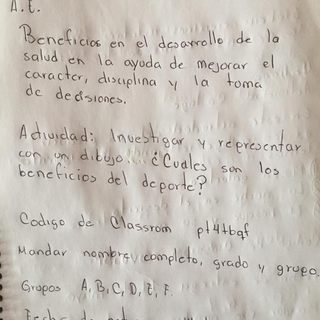 A.E.
Beneficios en el desarrollo de la
salud en la ayuda de mejorar el
caracter, disciplina y la toma
de decisiones.
Actividad: Investigar y representar
con un dibujo. ¿Cuales son los
beneficios del deporte?
Codigo de Classrom pt4tbqf
Mandar nombre completo, grado y grupo.
Grupos A, B, C, D, E, F.
Fecha de